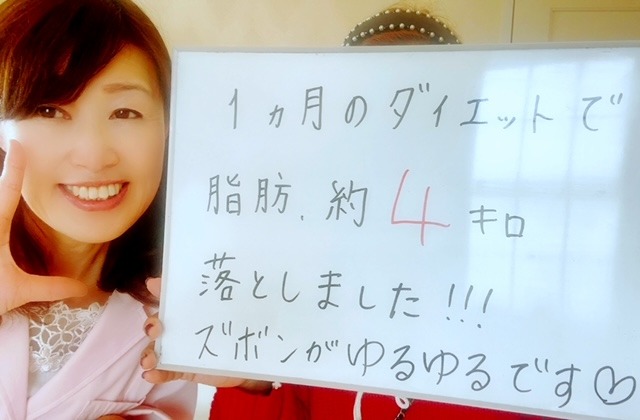 1ヵ月のダイエットで
脂肪、約4キロ
落としました!!!
ズボンがゆるゆるです♡